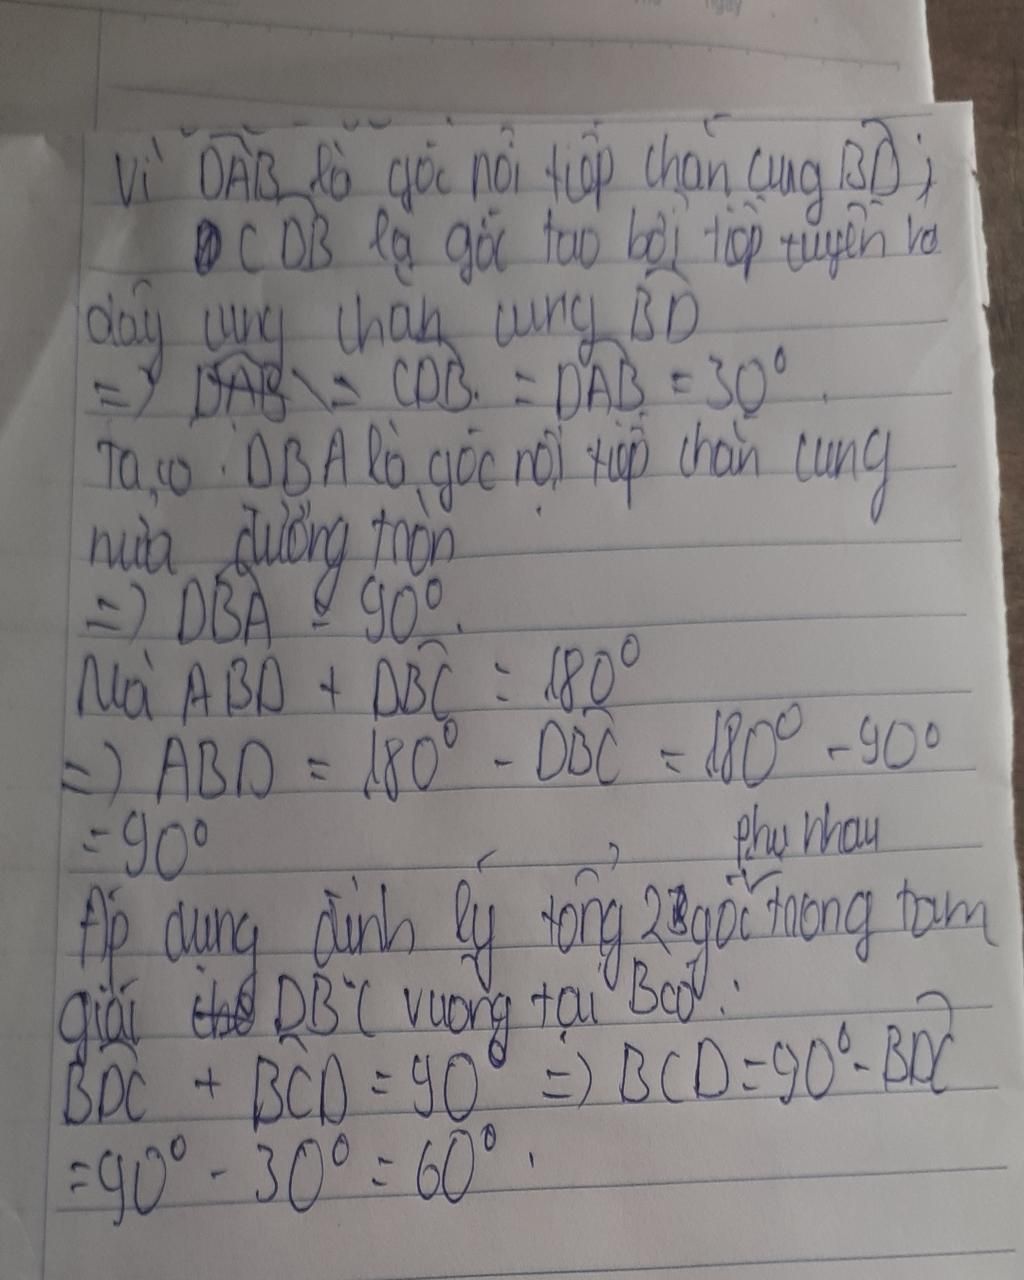 Vì DAB là góc nội tiếp chắn cung BD;
CDB là góc tạo bởi tiếp tuyến và
dây cung chắn cung BD
=> DAB = CDB. = DAB = 30°.
Ta có. DBA là góc nội tiếp chắn cung
nửa đường tròn
=> DBA = 90°.
Mà ABD + DBC = 180°
=> ABD = 180° - DBC = 180° - 90°
= 90°
phụ nhau
Áp dụng định lý tổng 2 góc trong tam
giác DBC vuông tại B có:
BDC + BCD = 90° => BCD = 90° - BDC
= 90° - 30° = 60°.